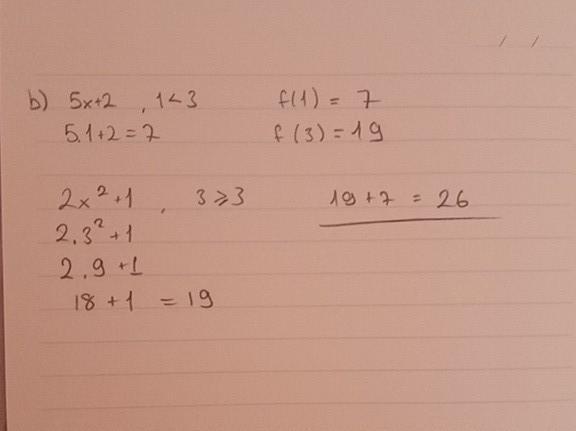 / /
b) 5x+2 , 1<3 f(1) = 7
5.1+2=7 f(3)=19
2x²+1 , 3⩾3 19+7 = 26
2.3²+1
2.9+1
18+1 =19